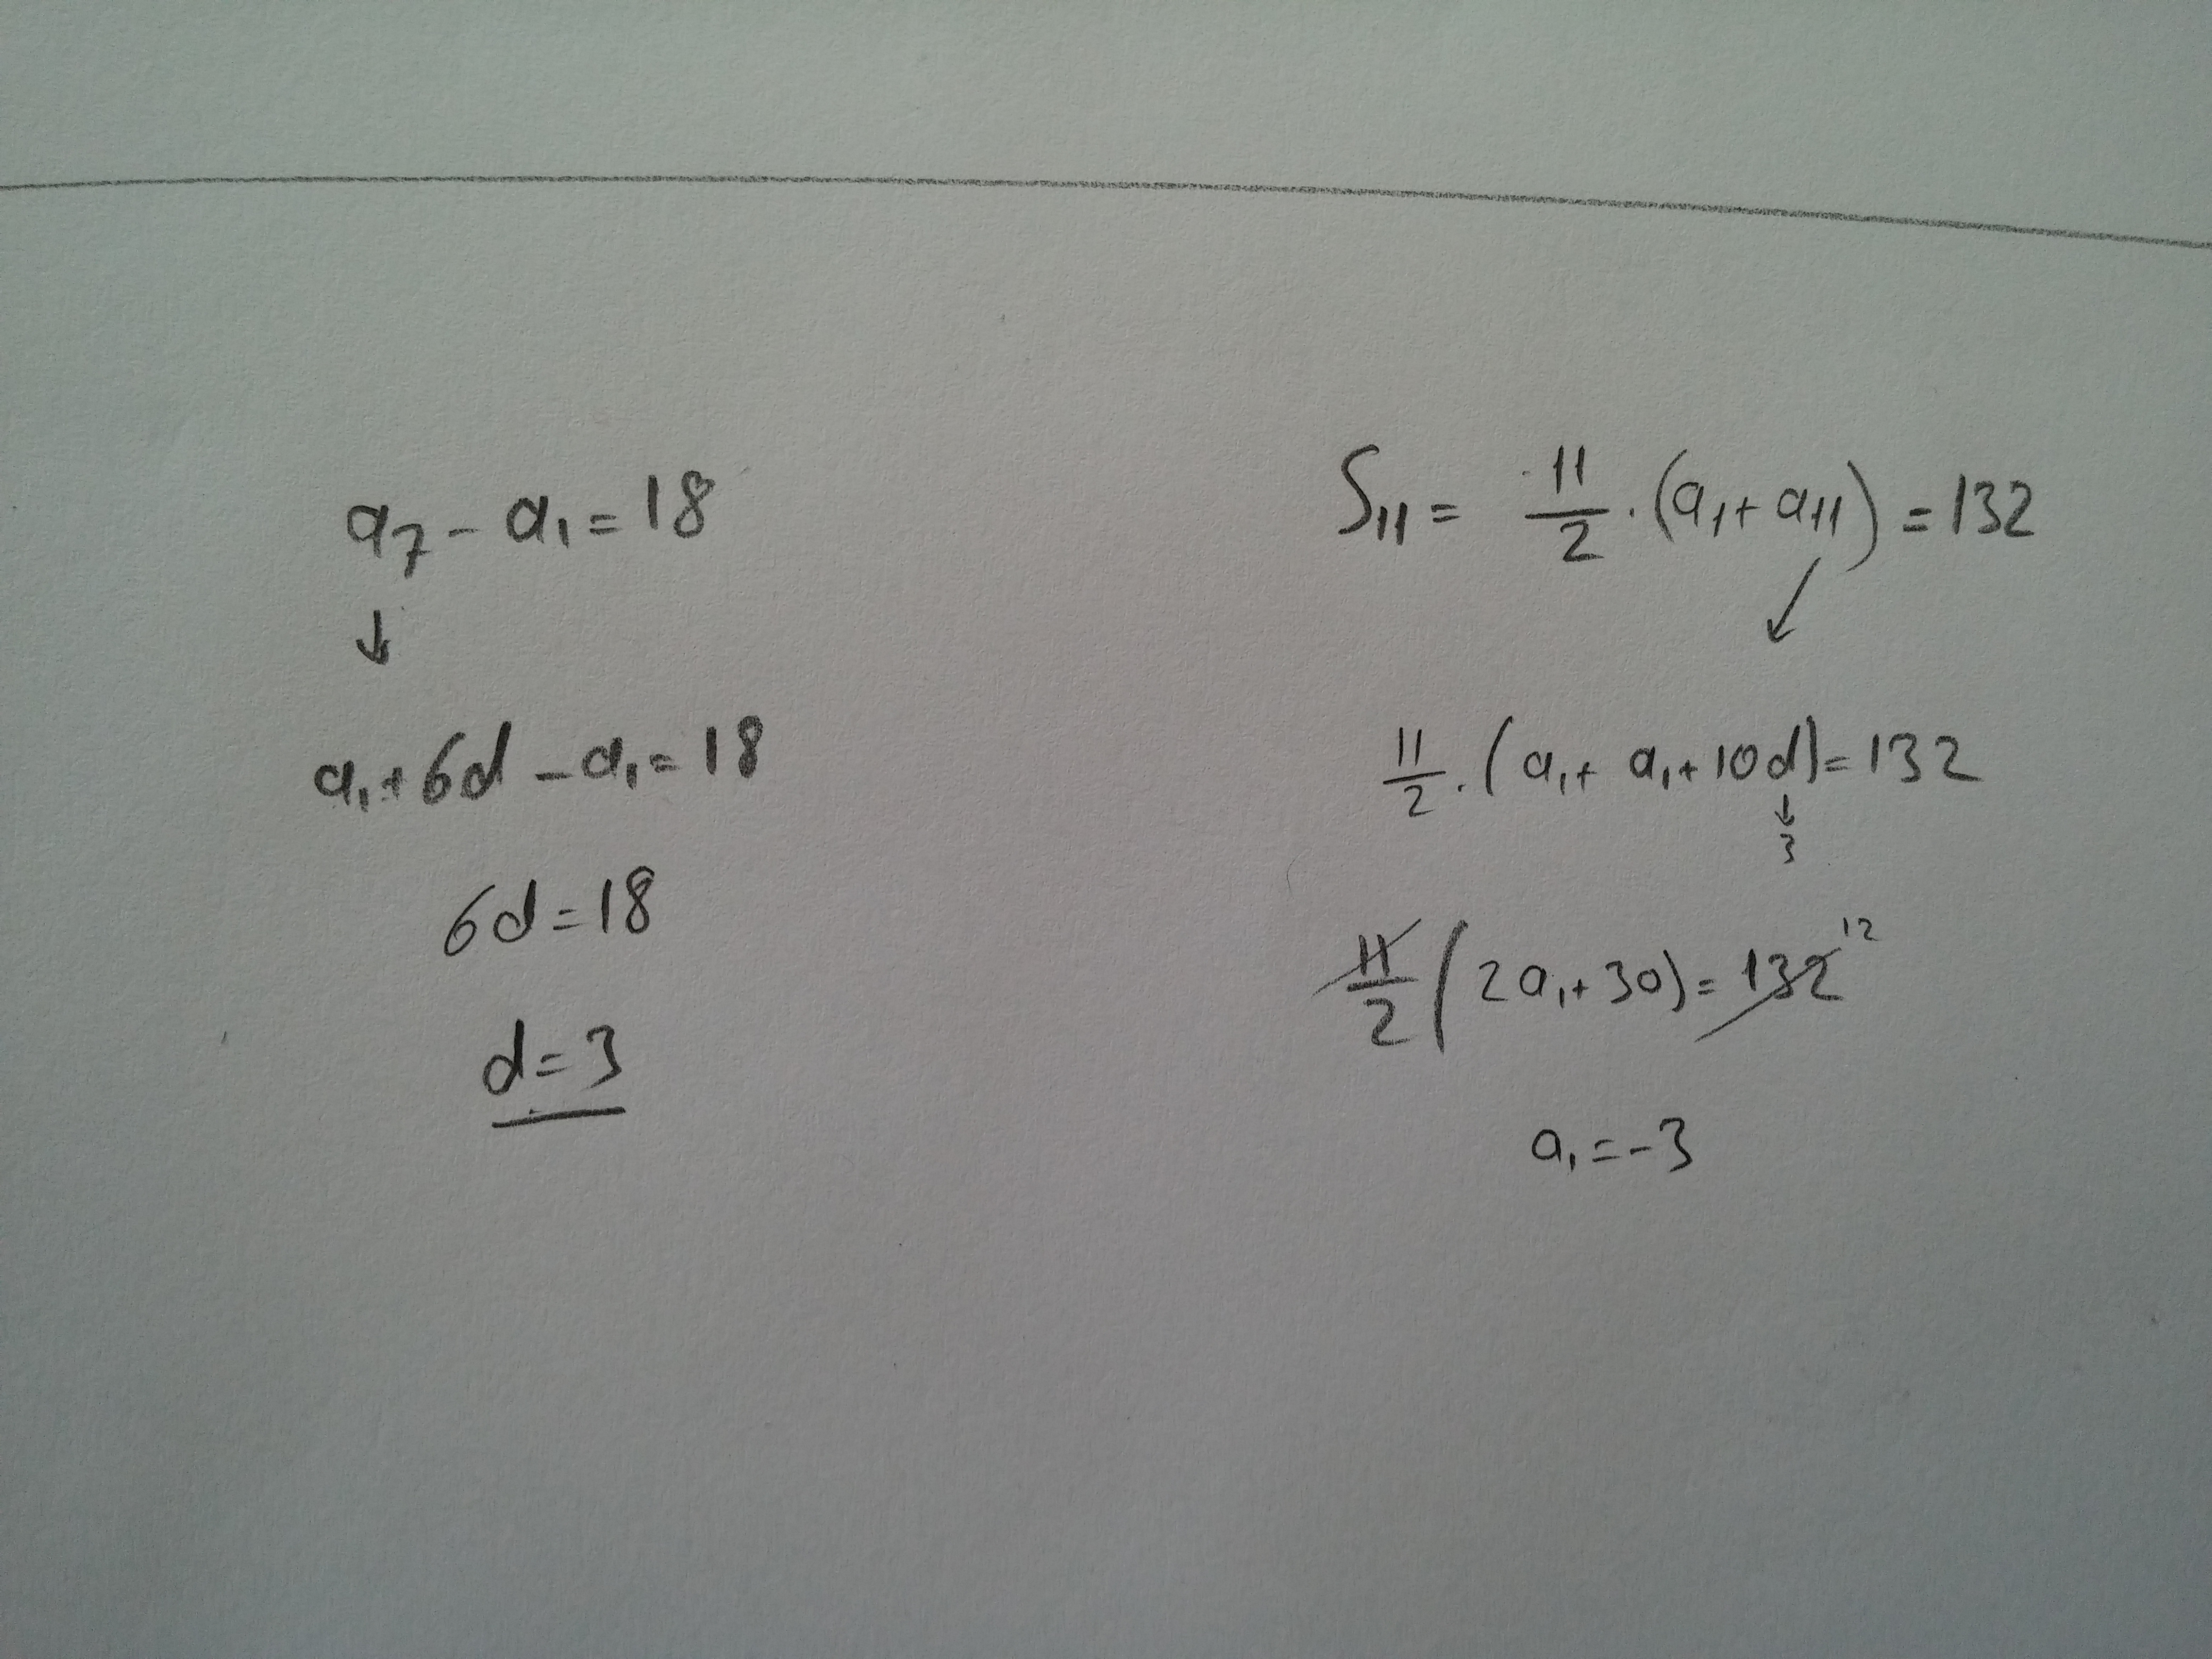 a₇ - a₁ = 18
↓
a₁ + 6d - a₁ = 18
6d = 18
d = 3
S₁₁ = 11/2 · (a₁ + a₁₁) = 132
↙
11/2 · (a₁ + a₁ + 10d) = 132
↓
3
11/2 (2a₁ + 30) = 132 12
a₁ = -3